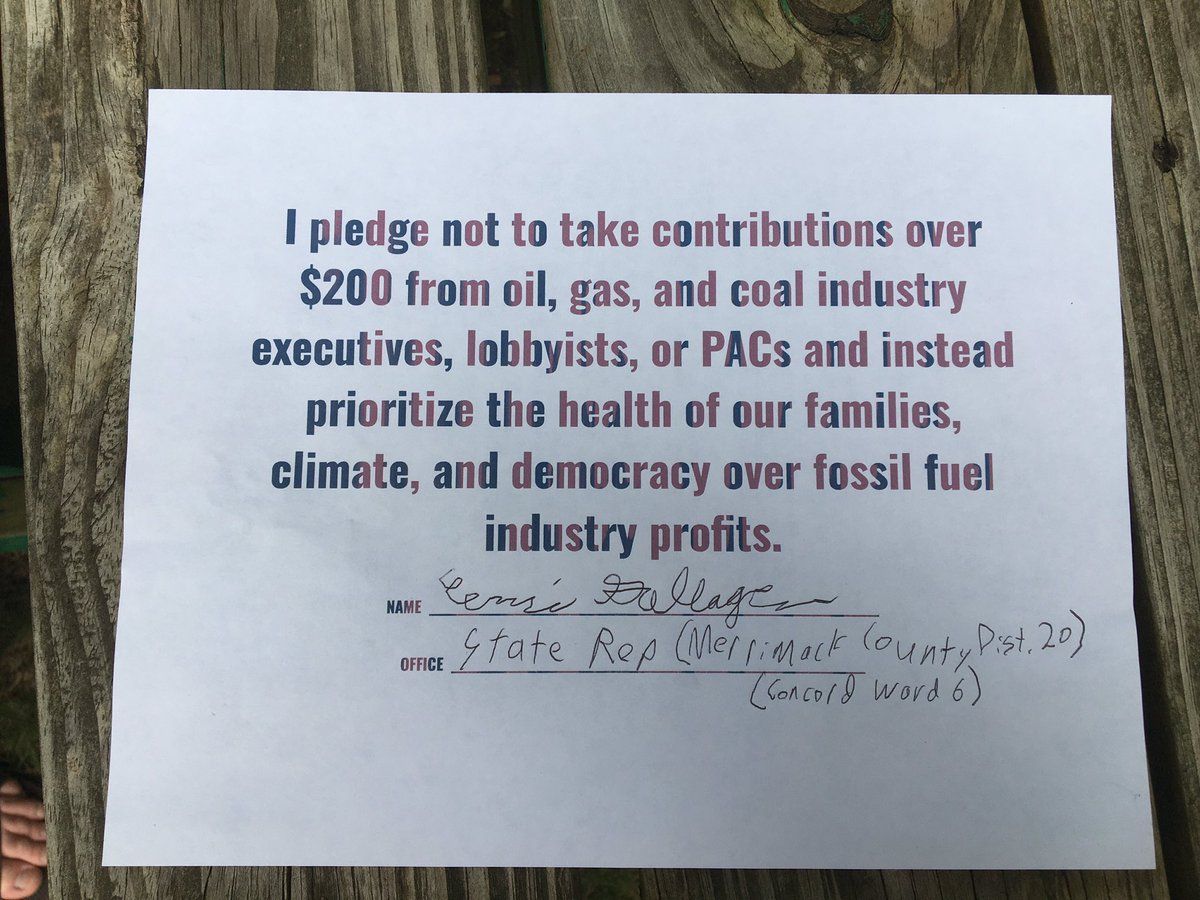 I pledge not to take contributions over
$200 from oil, gas, and coal industry
executives, lobbyists, or PACs and instead
prioritize the health of our families,
climate, and democracy over fossil fuel
industry profits.
NAME
OFFICE State Rep (Merrimack County, Dist. 20)
(Concord Ward 6)